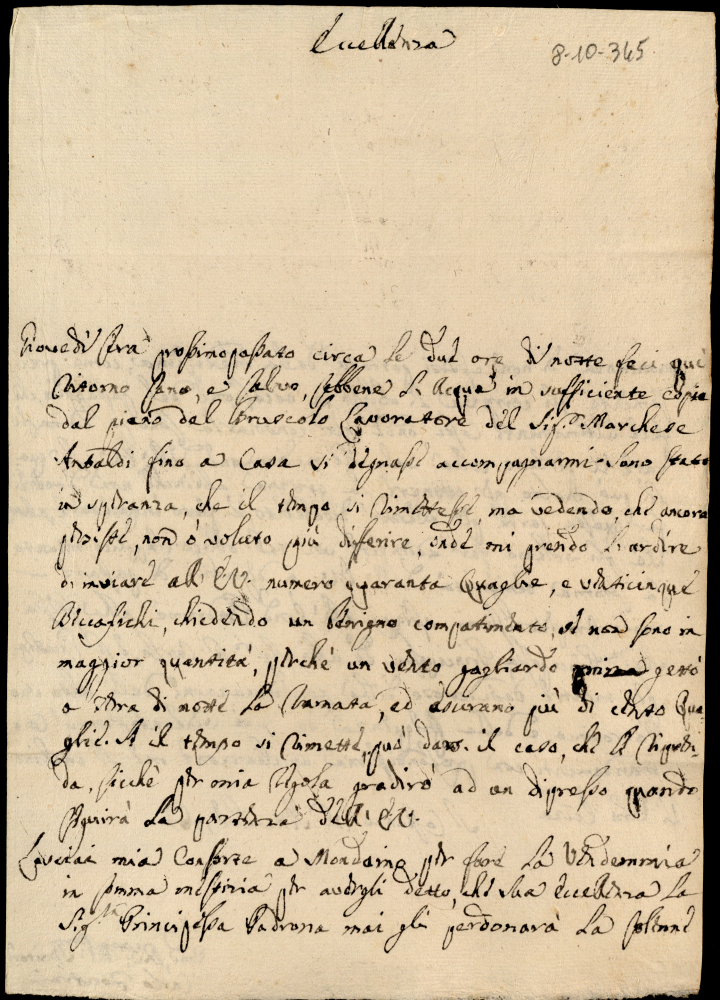 Eccellenza
8-10-345
Giovedì sera prossimopassato circa le due ore di notte feci quì
ritorno sano, e salvo, sebbene l'Acqua in sufficiente copia
dal piano del Bruscolo Lavoratore del Sig.r Marchese
Antaldi fino a Casa si degnasse accompagnarmi. Sono stato
in speranza, che il tempo si rimettesse, ma vedendo, che ancora
persiste, non ò voluto più differire, onde mi prendo l'ardire
di inviare all' E.V. numero quaranta Quaglie, e venticinque
Beccafichi, chiedendo un benigno compatimento, se non sono in
maggior quantità, perché un vento gagliardo gettò
a terra di notte la ramata, ed erano più di cento Qua-
glie. Se il tempo si rimette, può dars. il caso, che se ripren-
da, sicché per mia regola gradirò ad un dipresso quando
seguirà la partenza dell' E.V.
Lasciai mia Consorte a Mondaino per fare la Vendemmia
in somma mestizia per avergli detto, che Sua Eccellenza la
Sig.ra Principessa Padrona mai gli perdonarà la solenne